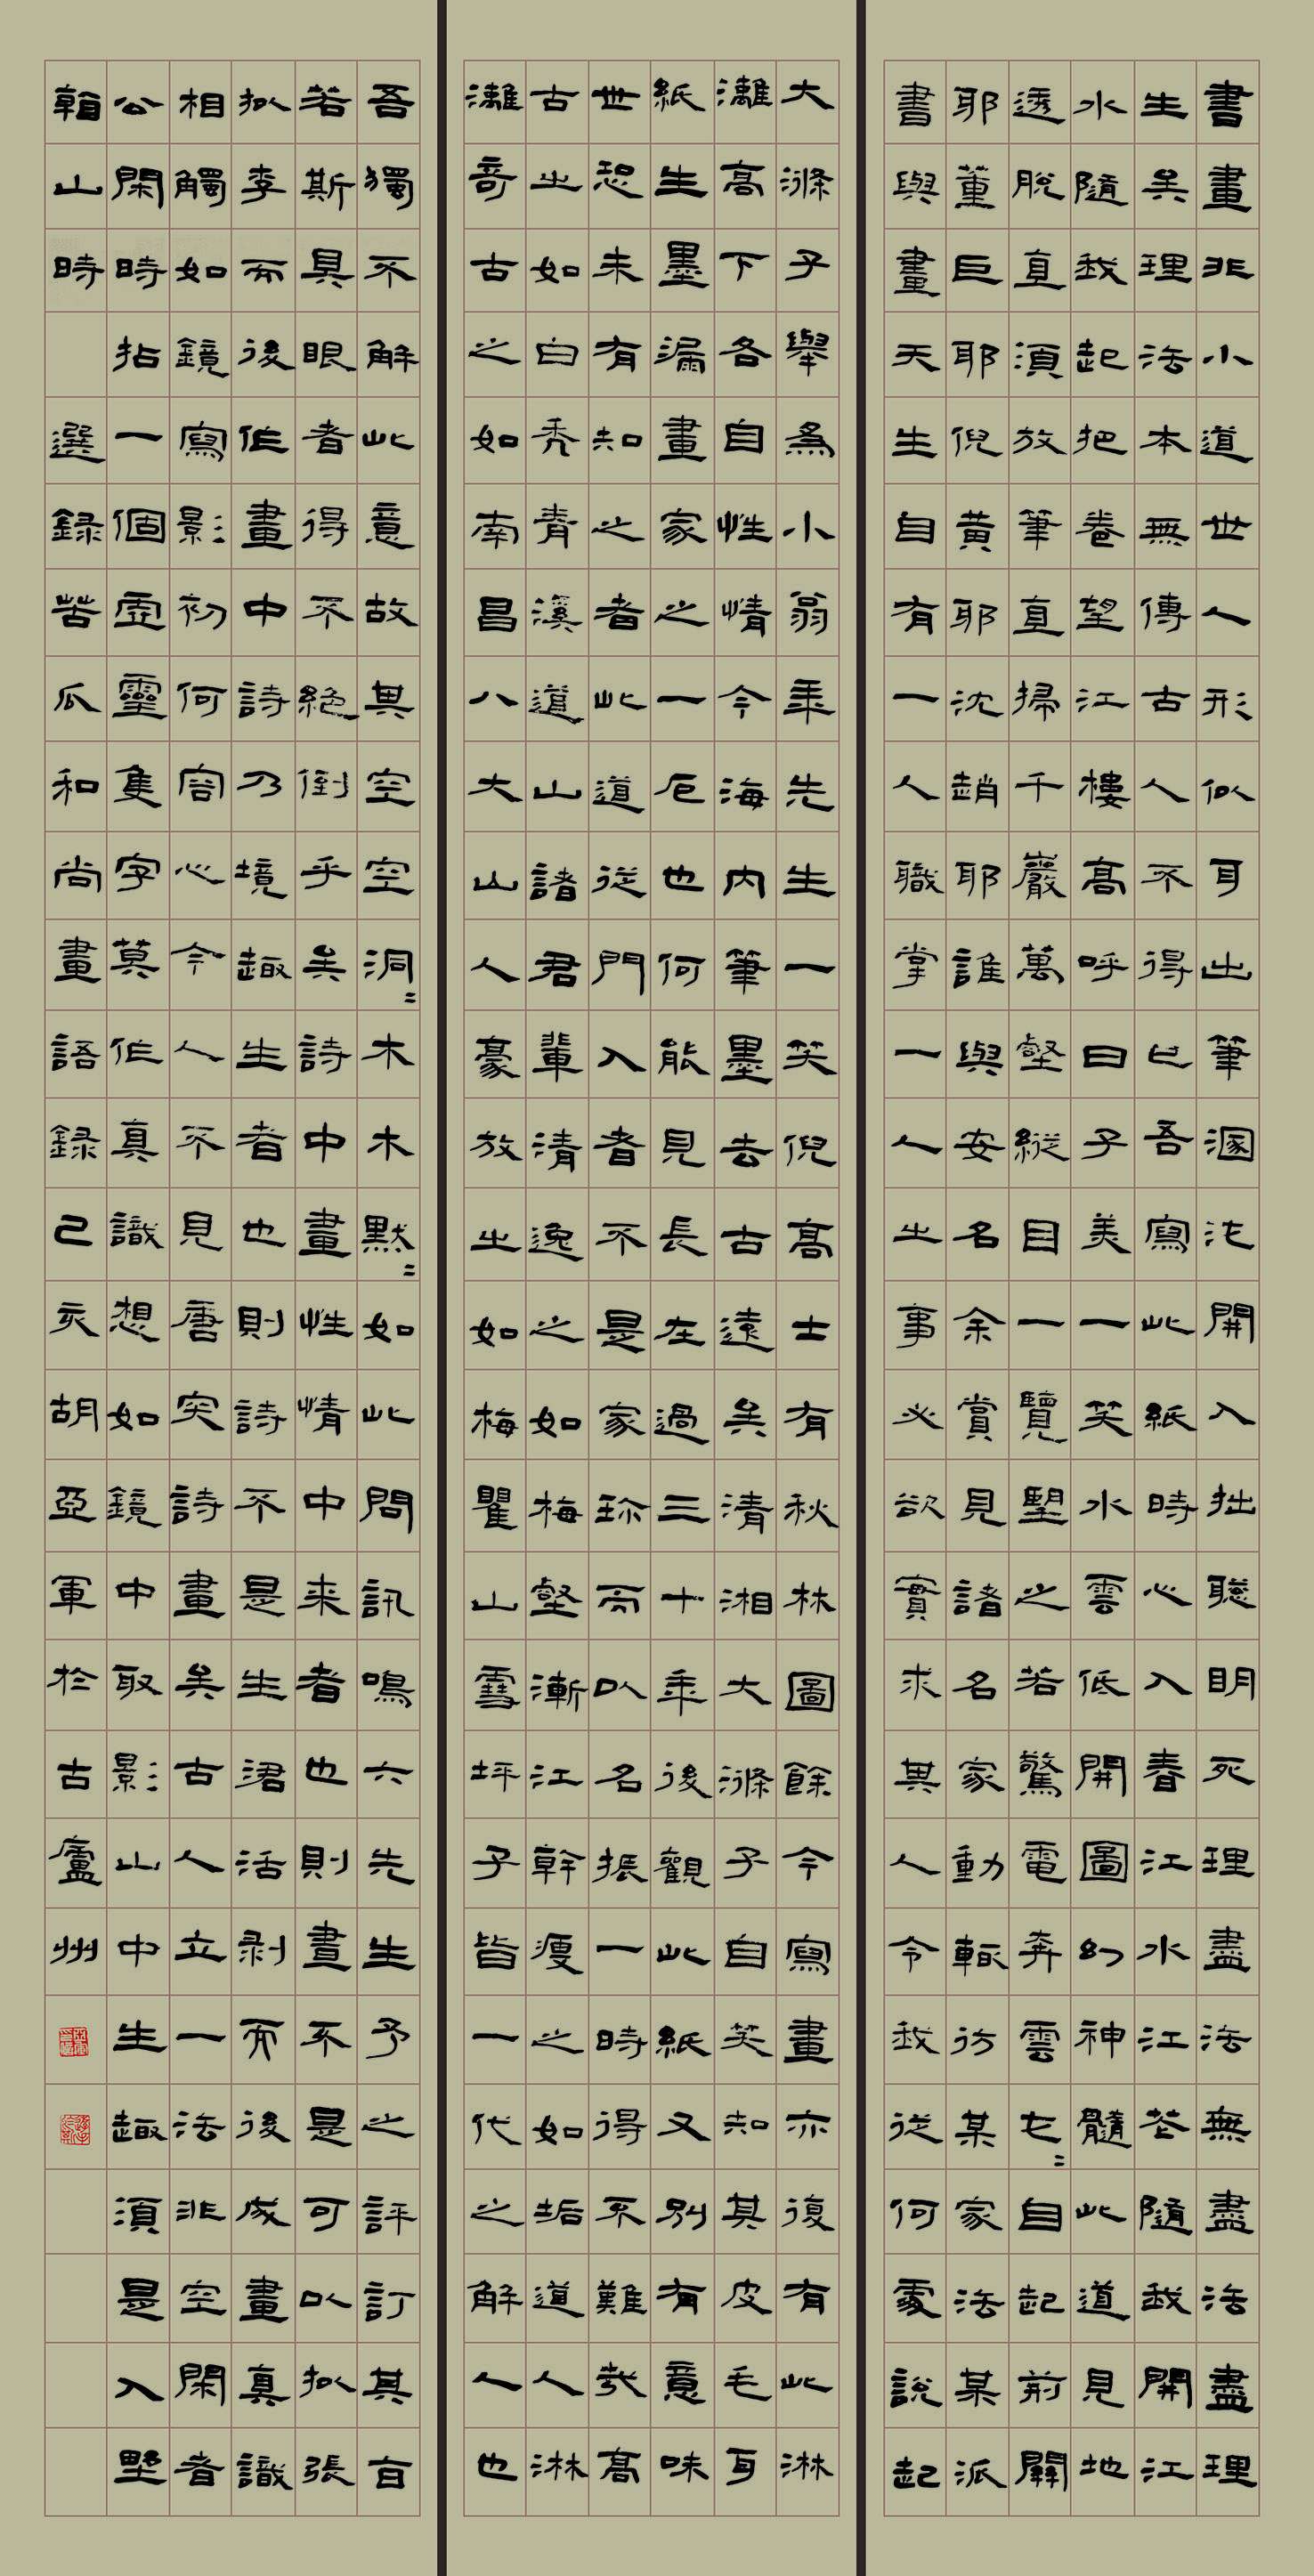 書畫非小道世人形似耳出筆溷沌開入拙聰明死理盡法無盡法盡理
生矣理法本無傳古人不得已吾寫此紙時心入春江水江花隨我開江
水隨我起把卷望江樓高呼曰子美一笑水雲低開圖幻神髓此道見地
透脫直須放筆直掃千巖萬壑縱目一覽望之若驚電奔雲屯〻自起荊關
耶董巨耶倪黃耶沈趙耶誰與安名余賞見諸名家動輒仿某家法某派
書與畫天生自有一人職掌一人之事必欲實求其人令我從何處說起
大滌子舉為小翁年先生一笑倪高士有秋林圖餘今寫畫亦復有此淋
灕高下各自性情今海內筆墨去古遠矣清湘大滌子自笑知其皮毛耳
紙生墨漏畫家之一厄也何能見長在過三十年後觀此紙又別有意味
世恐未有知之者此道從門入者不是家珍而以名振一時得不難哉高
古之如白禿青溪道山諸君輩清逸之如梅壑漸江幹瘦之如垢道人淋
灕奇古之如南昌八大山人豪放之如梅瞿山雪坪子皆一代之解人也
吾獨不解此意故其空空洞〻木木默〻如此問訊鳴六先生予之評訂其百
若斯具眼者得不絕倒乎矣詩中畫性情中来者也則畫不是可以拟張
拟李而後作畫中詩乃境趣生者也則詩不是生涒活剥而後成畫真識
相觸如鏡寫影初何容心今人不見唐突詩畫矣古人立一法非空閑者
公閑時拈一個虛靈隻字莫作真識想如鏡中取影山中生趣須是入野
翰山時 選錄苦瓜和尚畫語錄己亥胡亞軍於古廬州